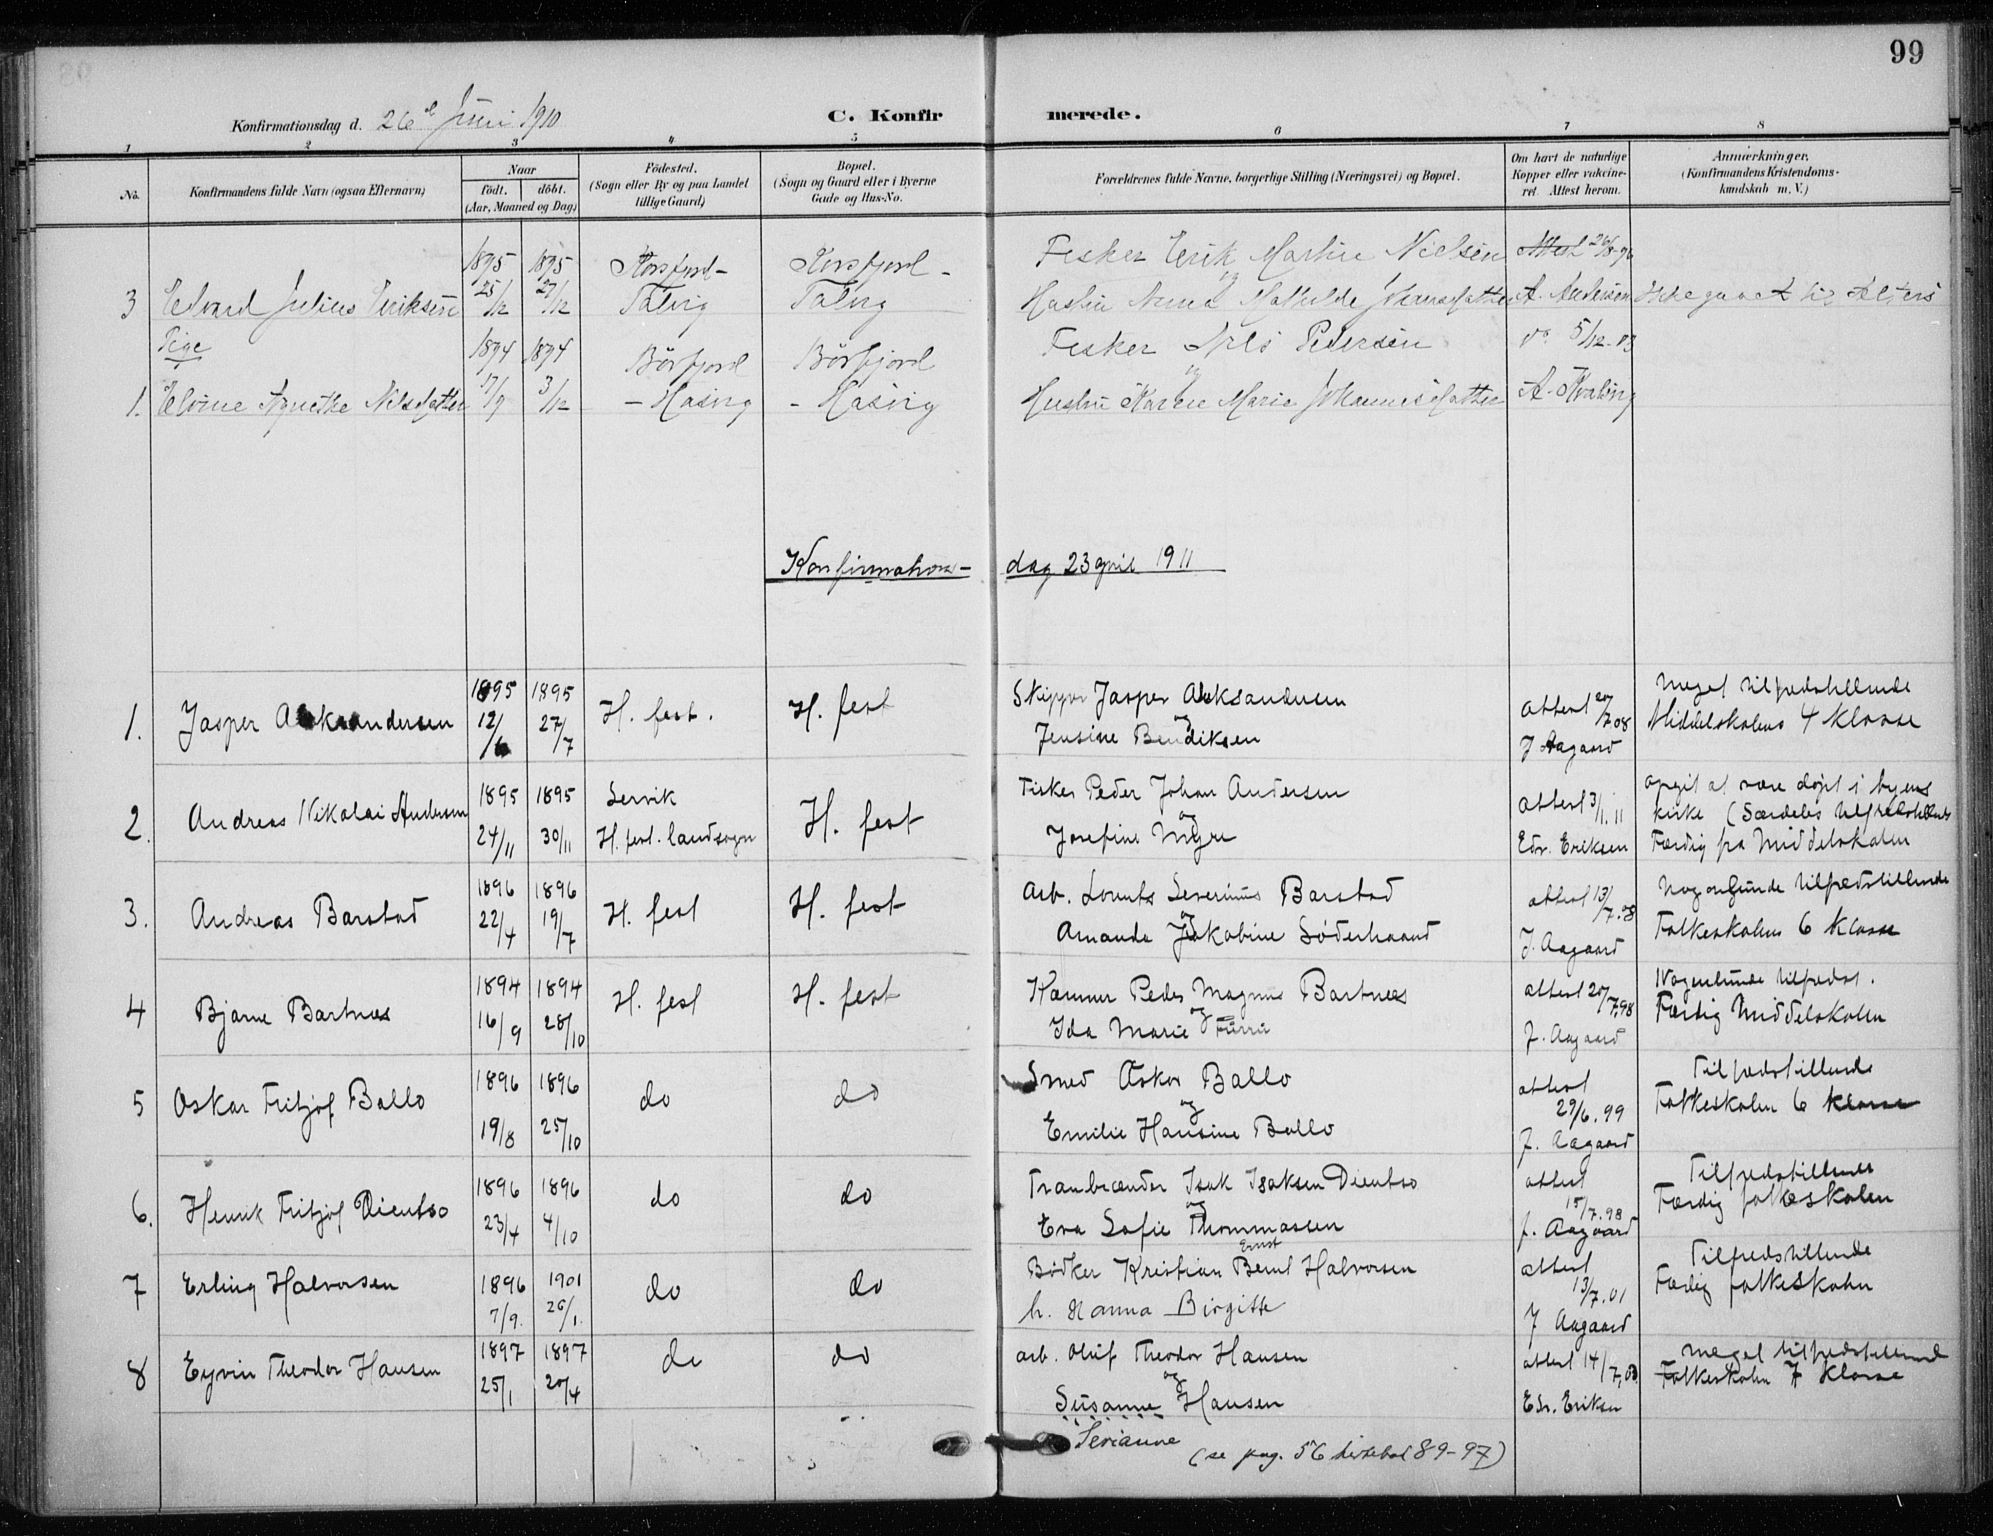 99
Konfirmationsdag d. 26de Juni 1910 C. Konfirmerede.
1 2 3 4 5 6 7 8
No. Konfirmandens fulde Navn (ogsaa Efternavn) Naar født. døbt. (Aar, Maaned og Dag) Fødested. (Sogn eller By og paa Landet tillige Gaard) Bopæl. (Sogn og Gaard eller i Byerne Gade og Hus-No. Forældrenes fulde Navne, borgerlige Stilling (Næringsvei) og Bopæl. Om havt de naturlige Kopper eller vakcineret. Attest herom. Anmærkninger. (Konfirmandens Kristendomskundskab m. V.)
1895 1895 Korsfjord - Korsfjord - Fisker Erik Martin Nielsen Attest 26/8-96
3 Edvard Julius Eriksen 25/12 27/12 Talvig Talvig og Hustru Anna Mathilde Johansdatter A. Andersen Ikke gaaet til Alters
Pige 1894 1894 Børfjord Børfjord Fisker Nils Pedersen do 5/12-03
1. Elvine Agnethe Nilsdatter 17/9 3/12 - Hasvig - Hasvig og Hustru Karen Marie Johannesdatter A. Kvalsvig
Konfirmations- dag 23 april 1911
1895 1895 Skipper Jasper Aleksandersen Meget tilfredstillende
1. Jasper Aleksandersen 12/6 27/7 H. fest. H. fest og Jensine Bendiksen attest 20/7 08 J Aagaard Middelskolens 4 klasse
2. Andreas Nikolai Andersen 1895 24/11 1895 30/11 Servik H. fest. landsogn H. fest Fisker Peder Johan Andersen og Josefine Myre attest 3/1. 11 Edv. Eriksen opgit at være døpt i byens kirke (Særdeles tilfredstillende Færdig fra Middelskolen
3. Andreas Barstad 1896 22/4 1896 19/7 H. fest H. fest Arb. Lorents Severinus Barstad og Amanda Jakobine Søderhaand attest 13/7.98 J. Aagaard Nogenlunde tilfredstillende Folkeskolens 6 klasse
4 Bjarne Bartnes 1894 16/9 1894 28/10 H. fest H. fest Kæmner Peder Magnus Bartnes og Ida Marie Furru attest 20/7.98 J. Aagaard Nogenlunde tilfredst. Færdig Middelskolen
5 Oskar Fritjof Ballo 1896 19/8 1896 25/10 do do Smed Oskar Ballo og Emilie Hansine Ballo attest 29/6.99 J. Aagaard Tilfredstillende Folkeskolen 6 klasse
6. Henrik Fritjof Dientso 1896 23/4 1896 4/10 do do Tranbrænder Isak Isaksen Dientso og Eva Sofie Thommassen attest 15/7.98 J. Aagaard Tilfredstillende Færdig folkeskolen
7 Erling Halvorsen 1896 7/9. 1901 26/1. do do Bødker Kristian Bernt Ernst Halvorsen h. Hanna Birgitte attest 13/7.01 J Aagaard Tilfredstillende Færdig folkeskolen
8 Eyvin Theodor Hansen 1897 25/1 1897 20/4 do do arb. Oluf Theodor Hansen og Susanne Hansen attest 14/7,03 Edv. Eriksen Meget tilfredstillende Folkeskolen 7 Klasse
Serianne
(se pag. 56 kirkebok 89-97)